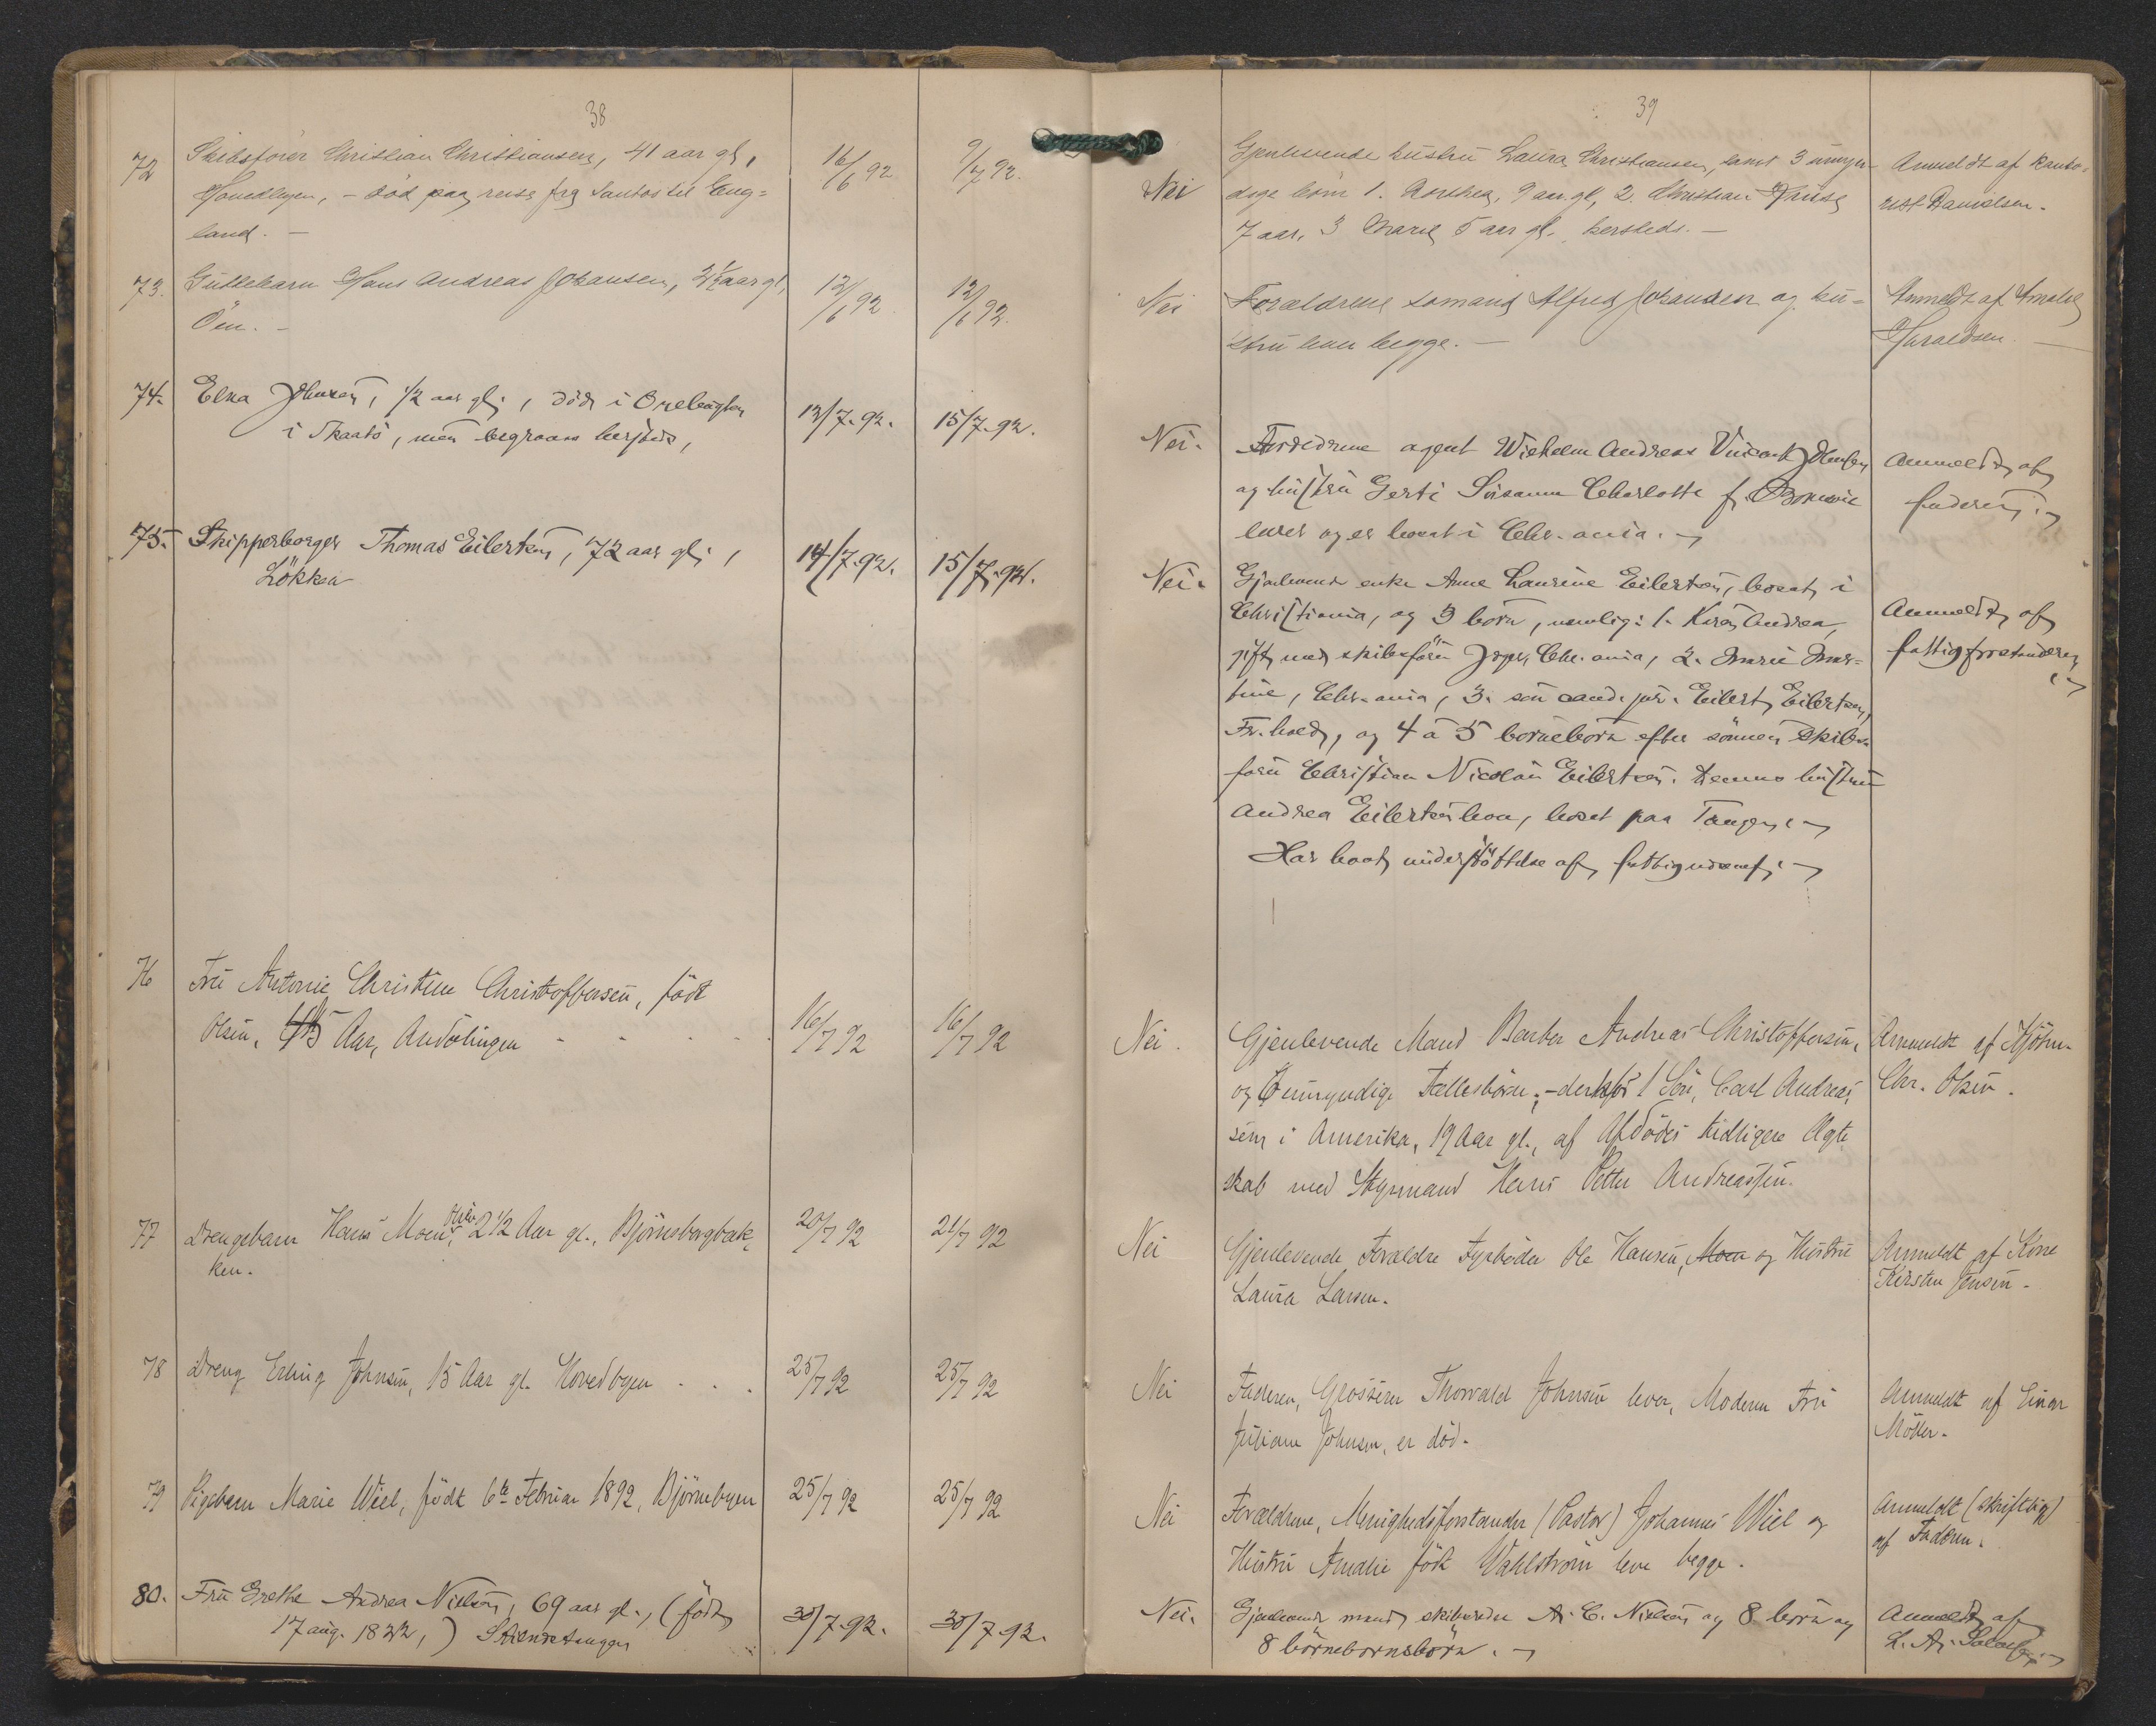 38
72 Skibsfører Christian Christiansen, 41 aar gl,
Hovedbyen, - død paa reise fra Santos til Eng=
land. -
16/6 92 9/7 92.
73. Guttebarn Hans Andreas Johansen, aar gl,
Öen. -
12/6 92 12/6 92.
74. Elna Johnsen, 1/2 aar gl., död i
i Skaatö, men begraves hersteds,
12/7.92. 15/7.92.
75. Skipperborger Thomas Eilertsen, 72 aar gl.,
Lökka
14/7.92. 15/7.92.
76 Fru Antonie Christine Christoffersen, född
Olsen, Aar,
16/7 92 16/7 92
77 Drengebarn Hans Moen, Olsen 2 1/2 Aar gl., Björnsbergbak
ken.
20/7 92 21/7 92
78 Dreng Erling Johnsen, 15 Aar gl. Hovedbyen . . .
25/7 92 25/7 92
79 Pigebarn Marie Wiel, født 6te Februar 1892, Björnebyen
25/7 92 25/7 92
80. Fru Grethe Andrea Nielsen, 69 aar gl., (född
17 aug. 1822,)
30/7.92. 30/7.92.
39
Nei Gjenlevende hustru Laura Christiansen, samt 3 umyn-
dige börn 1. Dorthea, 9 aar gl, 2. Christian
7 aar, 3 Marie 5 aar gl., hersteds. -
Anmeldt af
Danielsen.
Nei Forældrene sømand Alfred Johansen og hu=
stru lever begge. -
Anmeldt af Amalie
Haraldsen -
Nei. Forældrene agent Wilhelm Andreas Vincent Johnsen
og hustru Gerti Susanna Charlotte f.
lever og er bosat i Chr.ania.
Anmeldt af
faderen.
Nei. Gjenlevende enke Anne Laurine Eilertsen, bosat i
Christiania, og 3 börn, nemlig: 1. Karen Andrea,
gift med skibsförer Chr.ania, 2.
tine, Chr.ania, 3. sön cand. jur. Eilert Eilertsen,
Fr.hald, og 4 a 5 börnebörn efter sönnen skibs-
förer Christian Nicolai Eilertsen. Dennes hustru
Andrea Eilertsen lever, bosat paa Tangen.
Har havt understöttelse af fattigvæsenet.
Anmeldt af
fattigforstanderen
Nei. Gjenlevende Mand Barber Andreas Christoffersen,
og umyndige Fællesbörn; - derhos 1 Sön, Carl Andreas,
sém i Amerika, 19 Aar gl., af Afdödes tidligere Ægte
skab med Styrmand Hans Petter Andreassen.
Anmeldt af
Chr. Olsen.
Nei Gjenlevende Forældre Fyrböder Ole Hansen, Moen og Hustru
Laura Larsen.
Anmeldt af Kone
Kirsten Jensen.
Nei Faderen, Grosserer Thorvald Johnsen lever, Moderen Fru
Juliane Johnsen, er död.
Anmeldt af Einar
Möller.
Nei Forældrene, Menighedsforstander (Pastor) Johannes Wiel og
Hustru Amalie född Wahlström leve begge.
Anmeldt (skriftlig)
af Faderen.
Nei. Gjenlevende mand skibsreder A. C. Nielsen og 8 börn og
8 börnebornsbörn.
Anmeldt af
L. A.